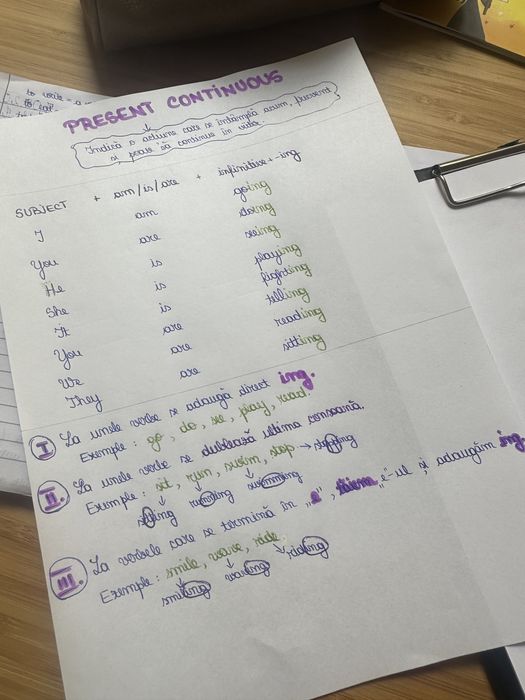 PRESENT CONTINUOUS
Indică o acțiune care se întâmplă acum, prezent
și poate să continue în viitor
SUBJECT + am/is/are + infinitive + -ing
I am going
You are doing
He is seeing
She is playing
It is fighting
You are telling
We are reading
They are sitting
I. La unele verbe se adaugă direct ing.
Exemple: go, do, see, play, read.
II. La unele verbe se dublează ultima consoană.
Exemple: sit, run, swim, stop → stopping
sitting running swimming
III. La verbele care se termină în „e”, „e”-ul și adaugăm ing.
Exemple: smile, wave, ride.
smiling waving riding